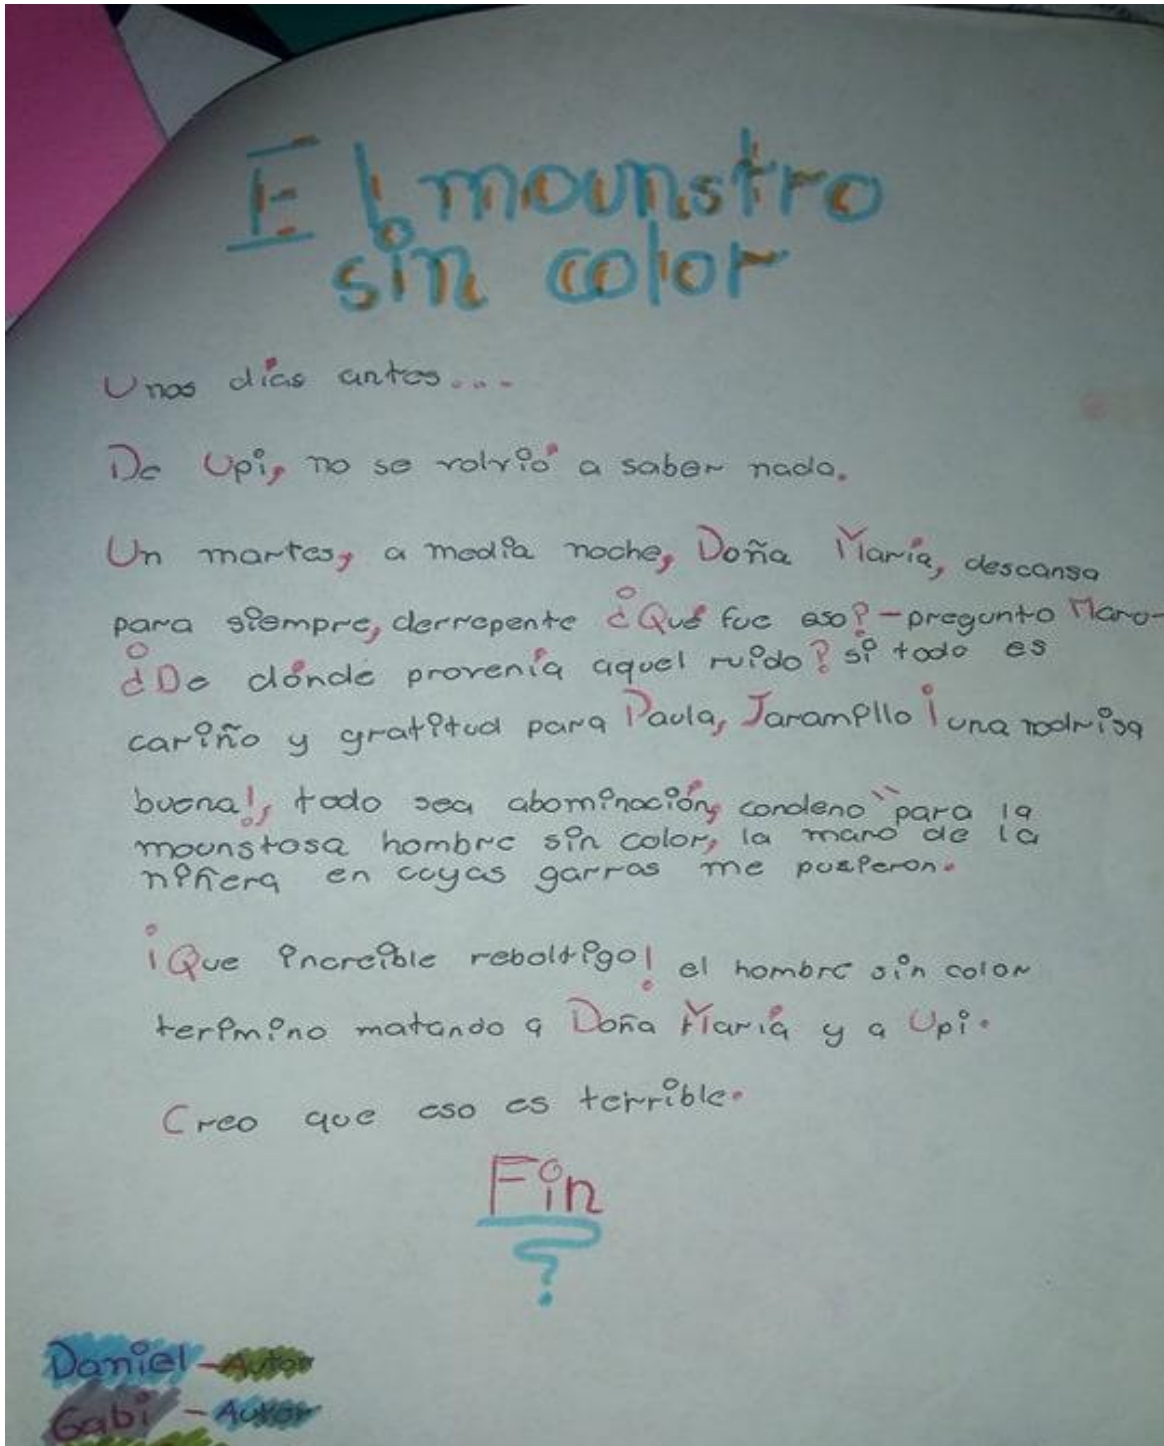 El mounstro
sin color
Unos días antes...
De Upi, no se volvió a saber nada.
Un martes, a media noche, Doña María, descansa
para siempre, derrepente ¿Qué fue eso? - pregunto Maro-
¿De dónde provenía aquel ruido? si todo es
cariño y gratitud para Paula, Jaramillo ¡una nodrisa
buena!, todo sea abominación, condeno "para la
mounstosa hombre sin color, la mano de la
niñera en cuyas garras me pusieron.
¡Que increíble reboltigo! el hombre sin color
termino matando a Doña María y a Upi.
Creo que eso es terrible.
Fin
?
Daniel - Autor
Gabi - Autor